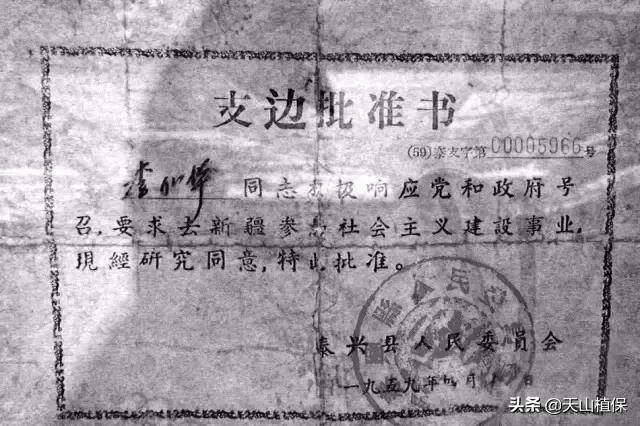 支边批准书
(59)泰支字第00005966号
同志积极响应党和政府号
召,要求去新疆参加社会主义建設事业,
現經研究同意,特此批准。
泰兴县人民委員会
一九五九年 月 日
头条 @天山植保